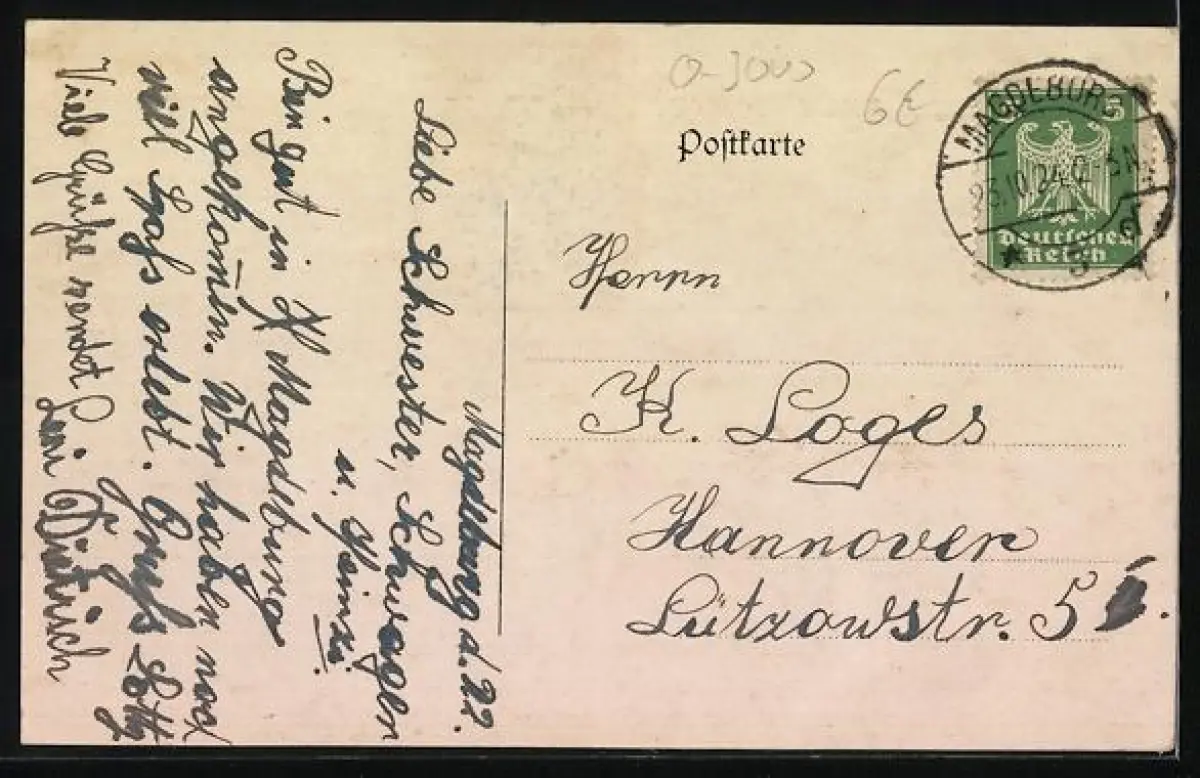 Postkarte
6€
MAGDEBURG
23.10.24
5
Deutsches
Reich
Herrn
K. Loges
Hannover
Lützowstr. 5
Magdeburg d. 22.
Liebe Schwester, Schwager
u. Heinz.
Bin gut in Magdeburg
angekom̄en. Wir haben noch
viel Spaß erlebt. Gruß Lotty
Viele Grüße sendet
Dietrich